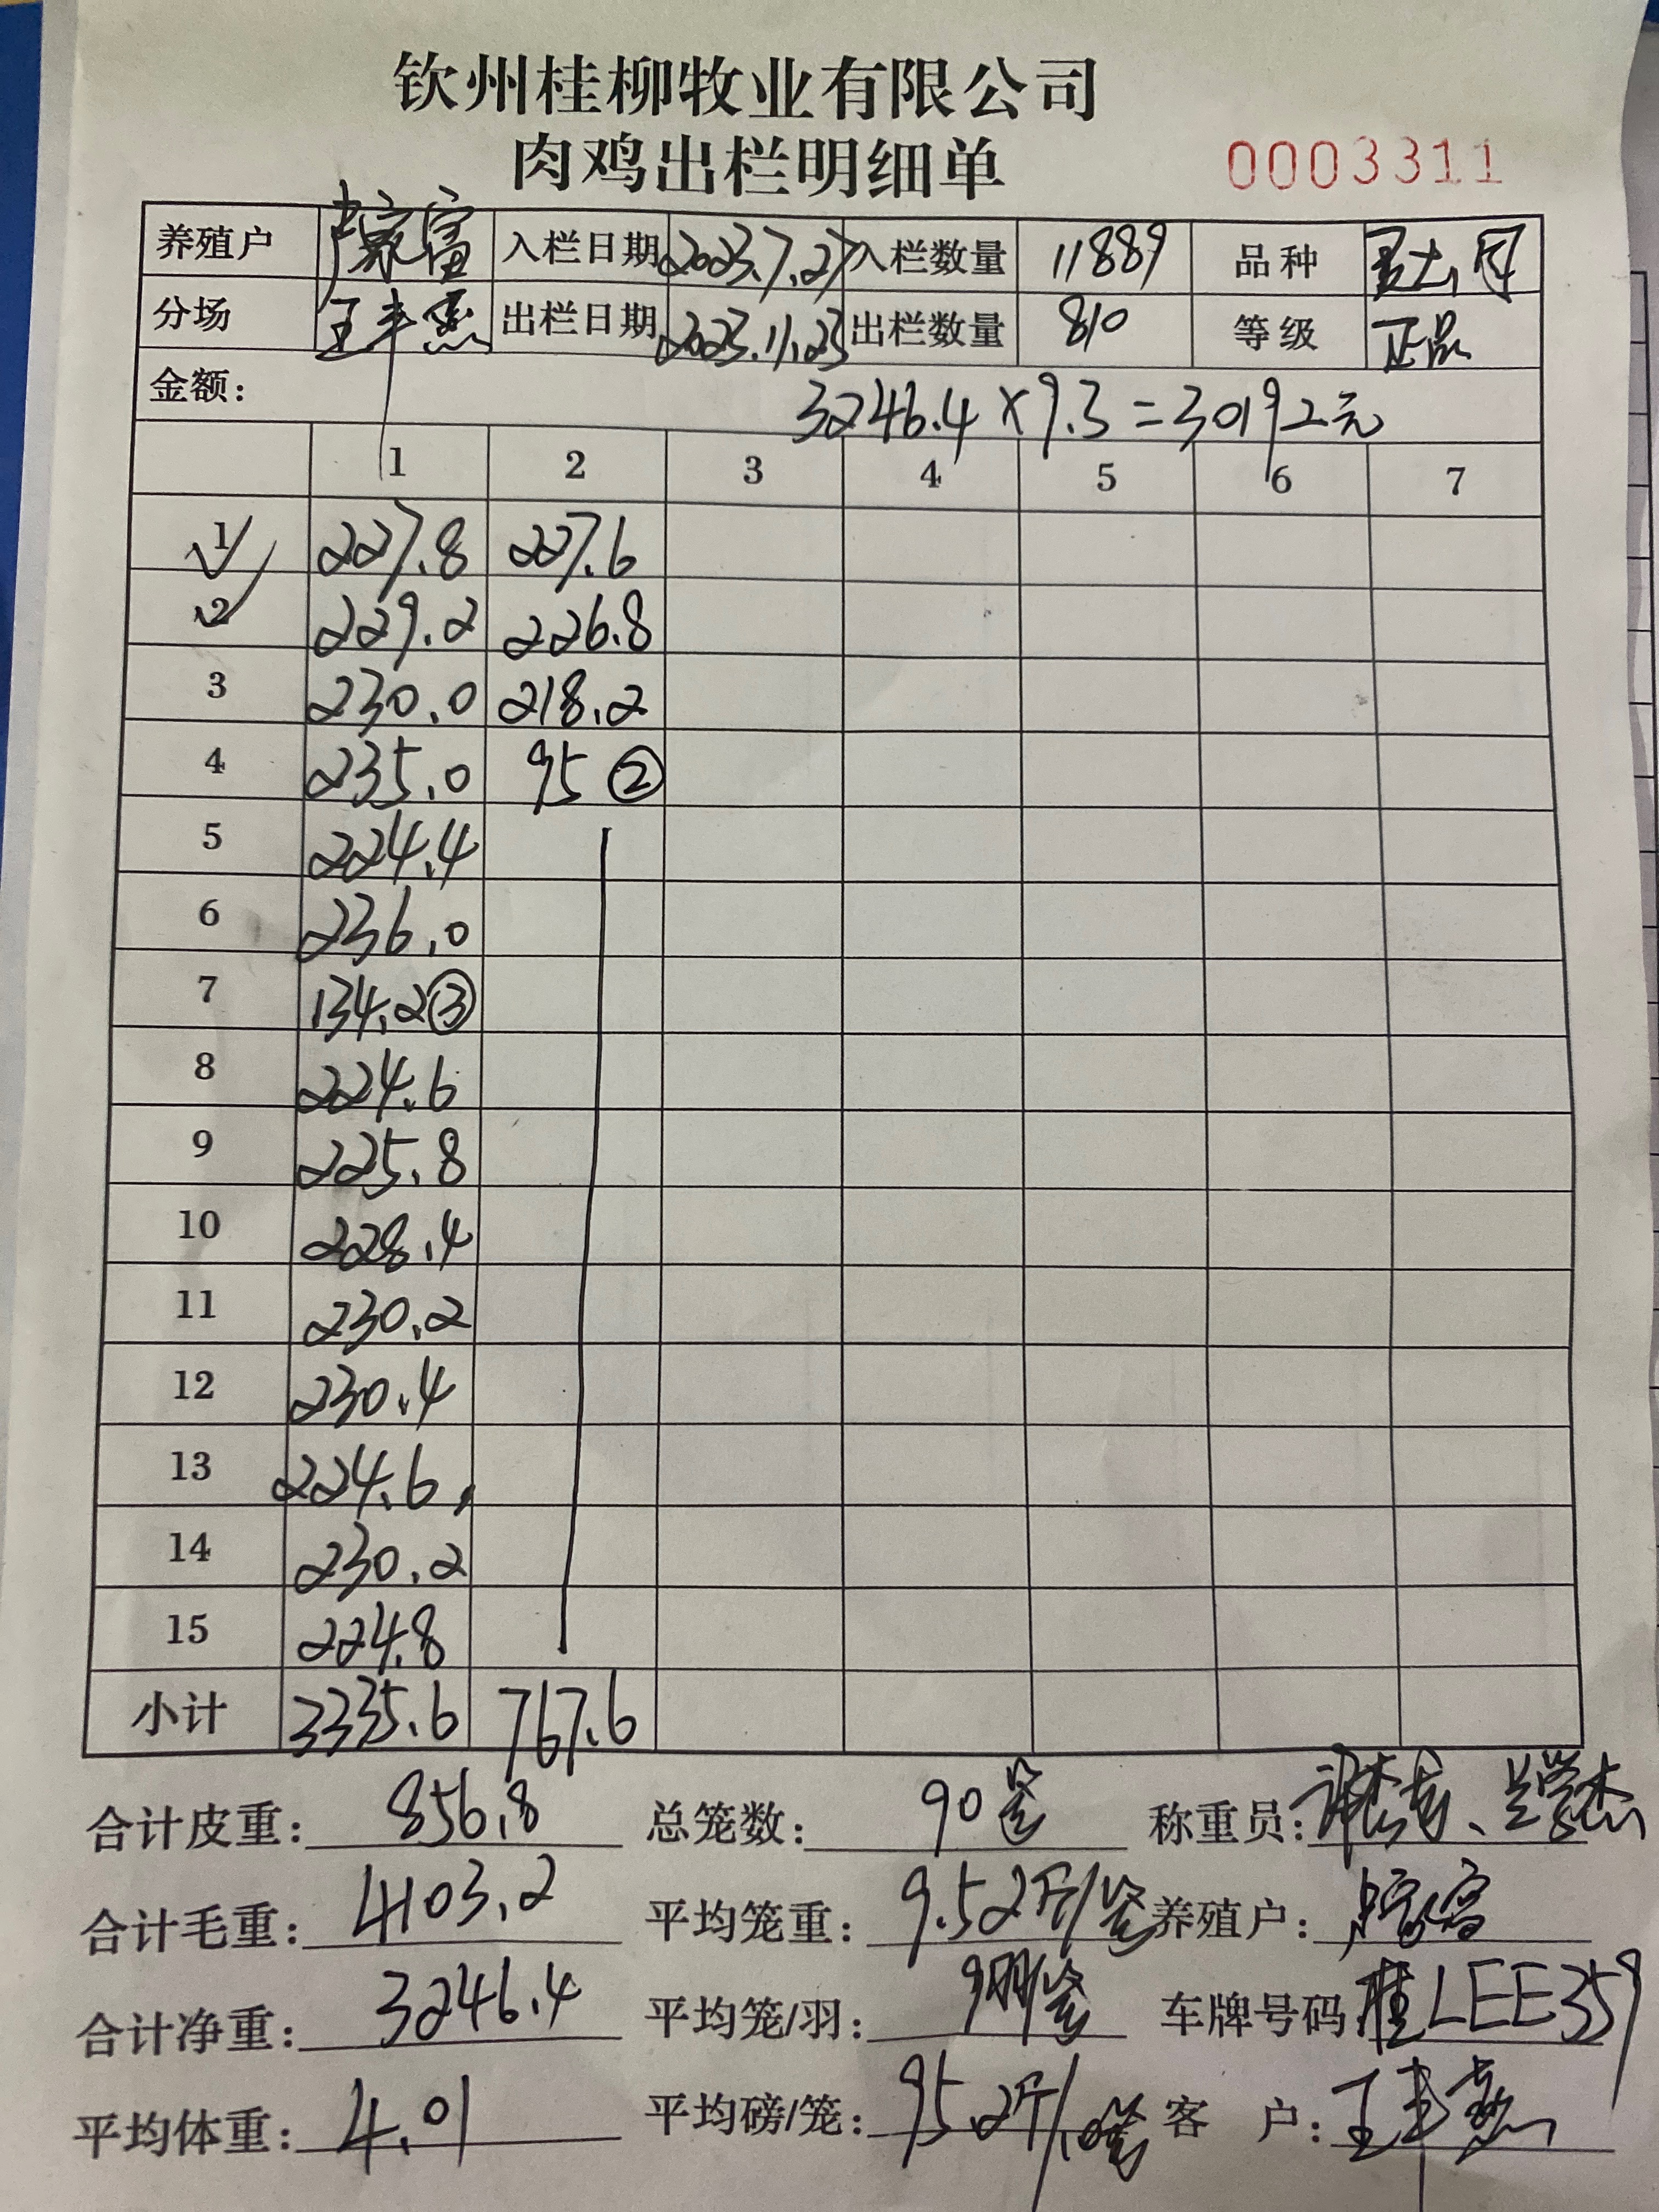 钦州桂柳牧业有限公司
肉鸡出栏明细单 0003311
养殖户 卢家富 入栏日期 2023.7.27 入栏数量 11889 品种
分场 王丰 出栏日期 2023.11.23 出栏数量 810 等级 正品
金额: 3246.4×9.3=30192元
1 2 3 4 5 6 7
1 227.8 227.6
2 229.2 226.8
3 230.0 218.2
4 235.0 95 ②
5 224.4
6 236.0
7 134.2③
8 224.6
9 225.8
10 228.4
11 230.2
12 230.4
13 224.6
14 230.2
15 224.8
小计 3335.6 767.6
合计皮重: 856.8 总笼数: 90笼 称重员:
合计毛重: 4103.2 平均笼重: 9.52斤/笼 养殖户: 卢家富
合计净重: 3246.4 平均笼/羽: 9羽/笼 车牌号码 桂LEE359
平均体重: 4.01 平均磅/笼: 95.2斤/ 客 户: 王丰